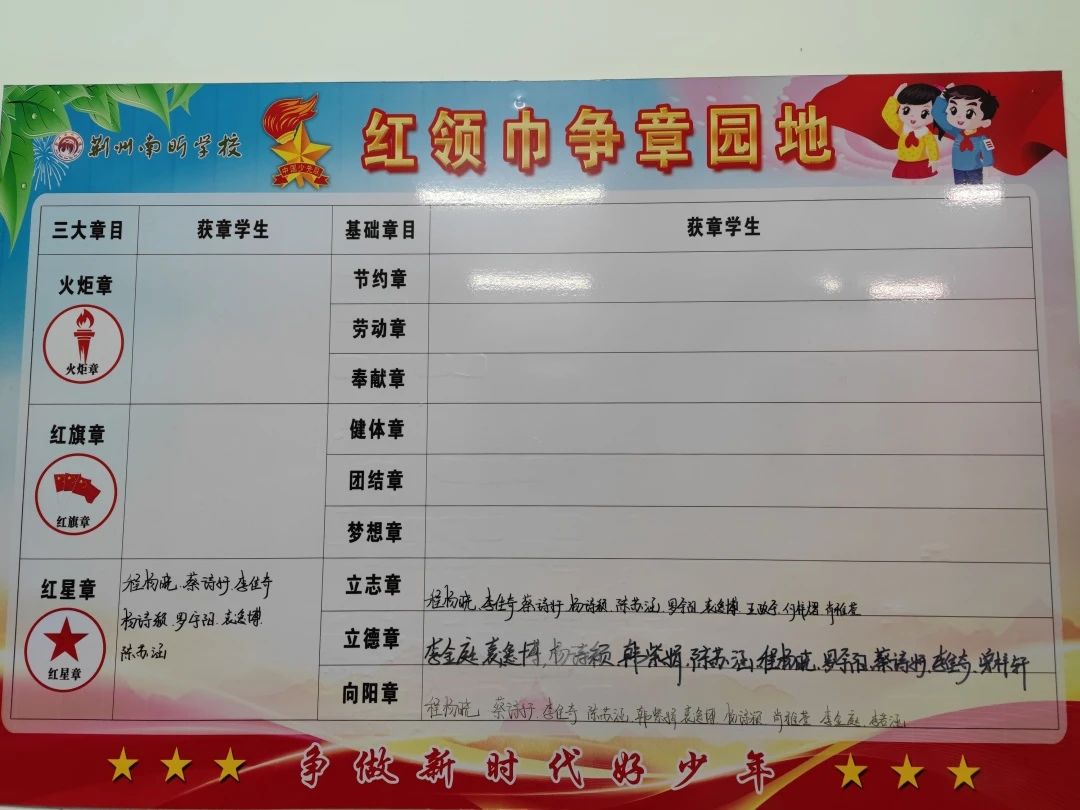 荆州南昕学校
红领巾争章园地
中国少先队
三大章目 获章学生 基础章目 获章学生
火炬章
火炬章
节约章
劳动章
奉献章
红旗章
红旗章
健体章
团结章
梦想章
红星章
红星章
程杨晓.蔡诗妤.李佳奇
杨诗颖.罗宇阳.袁逸博.
陈苏涵
立志章 程杨晓.李佳奇.蔡诗妤.杨诗颖.陈苏涵.罗宇阳.袁逸博
立德章 李金庭.袁逸博.杨诗颖.韩紫娟.陈苏涵.程杨晓.罗宇阳.蔡诗妤.李佳奇
向阳章 程杨晓.蔡诗妤.李佳奇.陈苏涵.韩紫娟.袁逸博.杨诗颖.肖雅萱.李金庭
争做新时代好少年